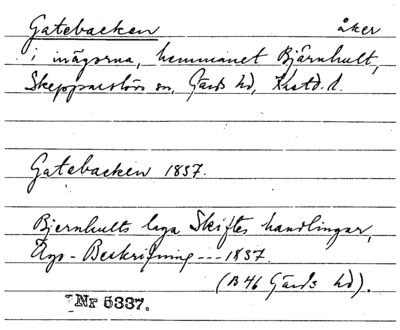 Gatebacken åker
i inägorna, hemmanet Bjärnhult,
Skepparslövs sn, Gärds hd, Kristd. l.
Gatebacken 1837.
Bjernhults laga Skiftes handlingar,
Egо-Beskrifning --- 1837.
(B 46 Gärds hd).
Nr 5337.